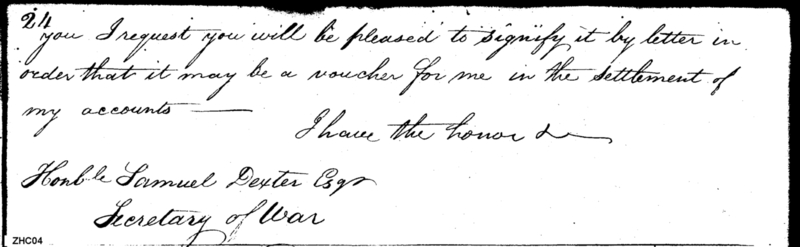 24
you I request you will be pleased to signify it by letter in
order that it may be a voucher for me in the settlement of
my accounts —
I have the honor &c
Honble Samuel Dexter Esqr
Secretary of War
ZHC04